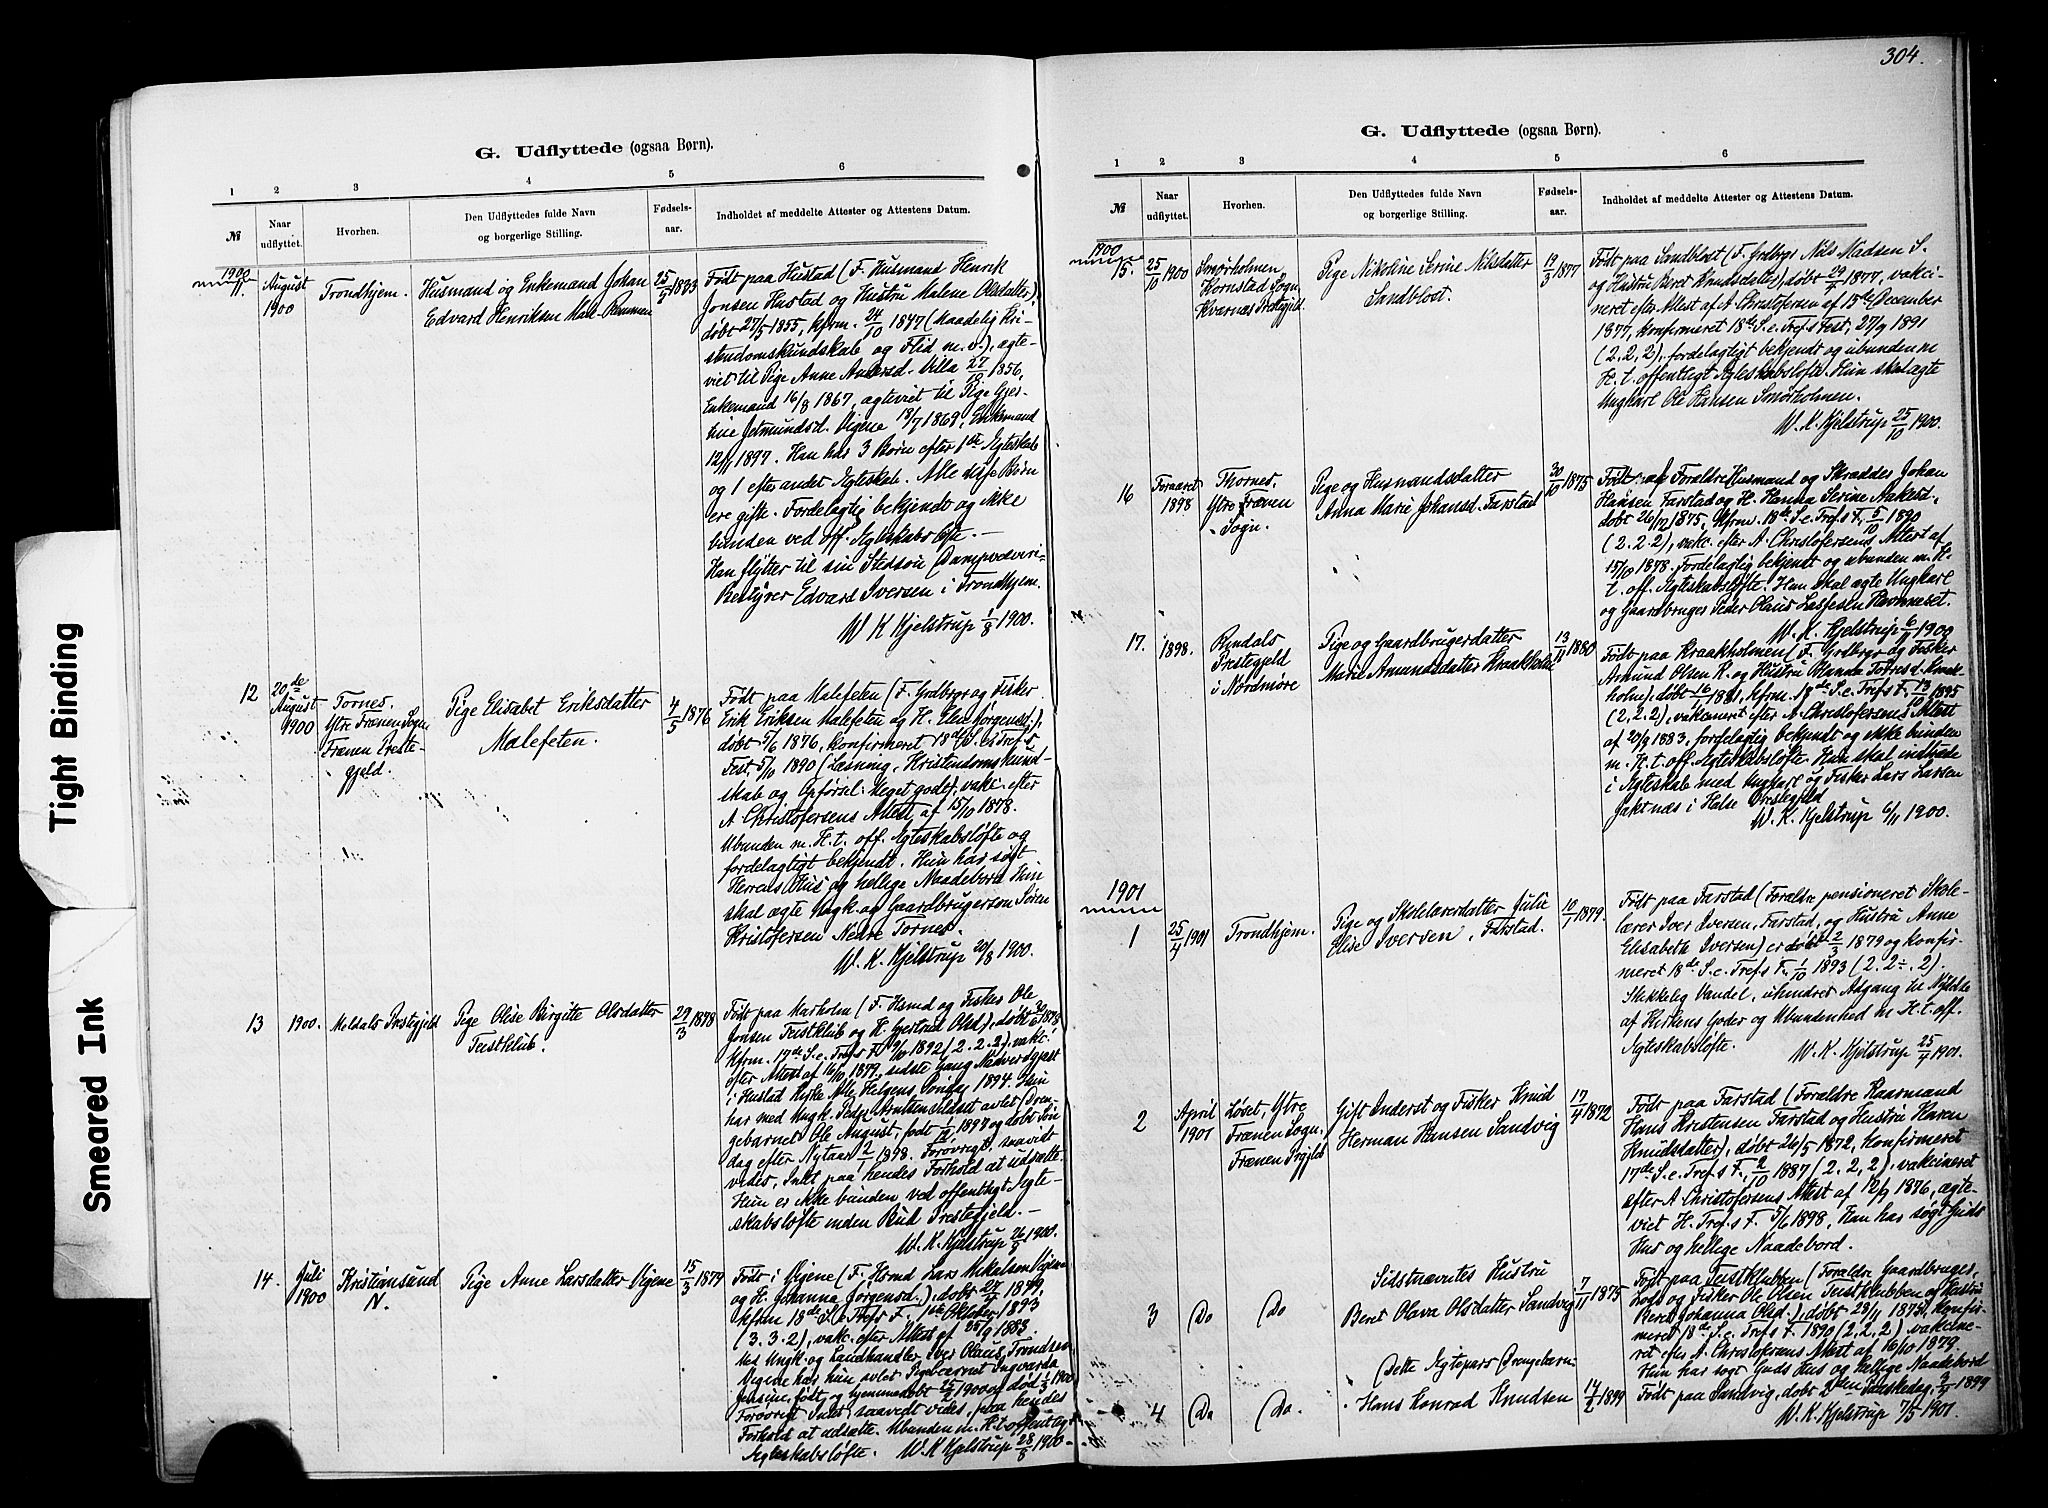 304.
G. Udflyttede (ogsaa Børn).
1 2 3 4 5 6
№ Naar udflyttet. Hvorhen. Den Udflyttedes fulde Navn og borgerlige Stilling. Fødsels-aar. Indholdet af meddelte Attester og Attestens Datum.
1900
11. August 1900
Trondhjem.
Husmand og Enkemand Johan
Edvard Henriksen Male-
25/5 1833
Født paa Hustad (F. Husmand Henrik
Jonsen Hustad og Hustru Malene Olsdatter),
døbt 27/5 1855, kfrm. 24/10 1847 (Maadelig Kri-
stendomskundskab og Flid m. v.), ægte-
viet til Pige Anne Andersd. Villa 27/12 1856,
Enkemand 16/8 1867, ægteviet til Pige Gjer-
tine Jetmundsd. Vigene 18/7 1869, Enkemand
12/11 1897. Han har 3 Børn efter 1ste Ægteskab
og 1 efter andet Ægteskab. Alle disse Børn
ere gifte. Fordelagtig bekjendt og ikke
bunden ved off. Ægteskabsløfte. —
Han flytter til sin Stedsøn Dampvæveri-
Bestyrer Edvard Iversen i Trondhjem.
W K Kjelstrup 1/8 1900.
12
20de August 1900
Tornes.
Ytre Frænen Sogn
Frænen Preste-
gjeld.
Pige Elisabet Eriksdatter
Malefeten.
4/5 1876
Født paa Malefeten (F. Grdbrgr og Fisker
Erik Eriksen Malefeten og H. Elen Jørgensd.),
døbt 5/6 1876, konfirmeret 18de S. e. Tref.s
Fest, 5/10 1890 (Læsning, Kristendomskund-
skab og Opførsel: Meget godt), vakc. efter
A. Christofersens Attest af 15/10 1878.
Ubunden m. H. t. off. Ægteskabsløfte og
fordelagtigt bekjendt. Hun har søgt
Herrens Hus og hellige Naadebord. Hun
skal ægte Ungk. og Gaardbrugersøn Søren
Kristofersen Nedre Tornes.
W. K. Kjelstrup 20/8 1900.
13
1900.
Meldals Prstegjeld
Pige Olise Birgitte Olsdatter
Teistklub.
29/3 1878
Født paa Marholm (F. Hsmd og Fisker Ole
Jonsen Teistklub og H. Gjertrud Olsd), døbt 30/6 1878
Kfrm. 17de S. e. Tref.s F. 9/10 1892 (2. 2. 2), vakc.
efter Attest af 16/10 1879, sidste Gang Nadverdgjæst
i Hustad Kirke Alle Helgens Søndag 1894. Hun
har med Ungk. Peder avlet Dren-
gebarnet Ole August, født 1897 og døbt Søn
dag efter Nytaar 2/1 1898. Forøvrigt, saavidt
vides, Intet paa hendes Forhold at udsætte.
Hun er ikke bunden ved offentligt Ægte-
skabsløfte inden Bud Prestegjeld. —
W. K. Kjelstrup 26/8 1900.
14.
Juli 1900
Kristiansund
N.
Pige Anne Larsdatter Vigene
15/3 1879
Født i Vigene (F. Hsmd Lars Mikalsen Vigene
og H. Johanna Jørgensd.), døbt 27/4 1879,
kfrm 18de S. e. Tref.s F. 1ste Oktober 1893
(3. 3. 2), vakc. efter Attest af 25/9 1883.
Med Ungk. og Landhandler Iver Olaus Trondsen
Vigene har hun avlet Pigebarnet Ingvarda
Jensine, født og hjemmedøbt 25/2 1900 og død 1/3 1900
Forøvrigt Intet, saavidt vides, paa hendes
Forhold at udsætte. Ubunden m. H. t. offentlig
Ægteskabsløfte. W. K Kjelstrup 28/8 1900
G. Udflyttede (ogsaa Børn).
1 2 3 4 5 6
№ Naar udflyttet. Hvorhen. Den Udflyttedes fulde Navn og borgerlige Stilling. Fødsels-aar. Indholdet af meddelte Attester og Attestens Datum.
1900
15.
25/10 1900
Smørholmen
Kornstad Sogn,
Kværnæs Prstegjeld.
Pige Nikoline Serine Nilsdatter
Sandblost.
19/3 1877
Født paa Sandblost (F. Grdbrgr Nils Madsen S.
og Hustru Beret Knudsdatter), døbt 29/4 1877, vakci-
neret efter Attest af A. Christofersen af 15de December
1877, konfirmeret 18de S. e. Tref.s Fest, 27/9 1891
(2. 2. 2), fordelagtigt bekjendt og ubunden m
H. t. offentligt Ægteskabsløfte. Hun skal ægte
Ungkarl Ole Hansen Smørholmen.
W. K. Kjelstrup 25/10 1900.
16
Foraaret 1898
Thornes,
Ytre Frænen
Sogn.
Pige og Husmandsdatter
Anna Marie Johansd. Farstad
30/10 1875
Født af Forældre Husmand og Skrædder Johan
Hansen Farstad og H. Hanna Serine Aakesd.,
døbt 26/12 1875, Kfrm. 18de S. e. Tref.s F. 5/10 1890
(2. 2. 2), vakc. efter A. Christofersens Attest af
15/10 1878. Fordelagtig bekjendt og ubunden m. H.
t. off. Ægteskabsløfte. Hun skal ægte Ungkarl
og Gaardbruger Peder Olaus Lassesen
W. K. Kjelstrup 6/11 1900
17.
1898.
Rindals
Prstegjeld
i Nordmøre
Pige og Gaardbrugerdatter
Marie Amundsdatter Kraakholm
13/11 1880
Født paa Kraakholmen (F. Grdbrgr og Fisker
Amund Olsen K. og Hustru Tøresd. Kraak-
holm), døbt 16/1 1881, Kfrm. 18de S. e. Tref.s F. 13/10 1895
(2. 2. 2), vakcineret efter A. Christofersens Attest
af 20/9 1883. fordelagtig bekjendt og ikke bunden
m. H. t. off. Ægteskabsløfte. Hun skal indtræde
i Ægteskab med Ungkarl og Fisker Lars Larsen
Jaktnæs i Halse Prestegjeld
W. K. Kjelstrup 6/11 1900.
1901
1
25/4 1901
Trondhjem.
Pige og Skolelærerdatter Julie
Elise Iversen, Farstad.
10/1 1879.
Født paa Farstad (Forældre pensioneret Skole-
lærer Iver Iversen, Farstad, og Hustru Anne
Elisabeth Iversen) er døbt 2/3 1879 og konfir-
meret 18de S. e. Tref.s F. 1/10 1893 (2. 2÷. 2).
Skikkelig Vandel, uhindret Adgang til Nydelse
af Kirkens Goder og Ubundenhed m H. t. off.
Ægteskabsløfte.
W. K. Kjelstrup 25/4 1901.
2
April 1901
Løset, Ytre
Frænen Sogn,
Frænen Prgjeld
Gift Inderst og Fisker Knud
Herman Hansen Sandvig
17/4 1872
Født paa Farstad (Forældre Kaarmand
Hans Kristensen Farstad og Hustru Karen
Knudsdatter), døbt 26/5 1872, Konfirmeret
17de S. e. Tref.s F. 2/10 1887 (2, 2, 2), vakcineret
efter A. Christofersens Attest af 12/9 1876, ægte-
viet H. Tref.s F. 5/6 1898, Han har søgt Guds
Hus og hellige Naadebord.
3
Do
Do
Sidstnævntes Hustru
Beret Olava Olsdatter Sandvig
7/11 1875
Født paa Teistklubben (Forældre Gaardbruger,
Lods og Fisker Ole Olsen Teistklubben og Hustru
Beret Johanna Olsd.), døbt 28/11 1875, Konfir-
meret 18de S. e. Tref.s F. 1890 (2, 2, 2), vakcine-
ret efter A. Christofersens Attest af 16/10 1879.
Hun har søgt Guds Hus og hellige Naadebord
4
Do
Do.
Dette Ægtepars Drengebarn:
Hans Konrad Knudsen
14/2 1899
Født paa Sandvig, døbt 2den Paaskedag, 3/4 1899
W. K. Kjelstrup 7/5 1901.
Tight Binding
Smeared Ink